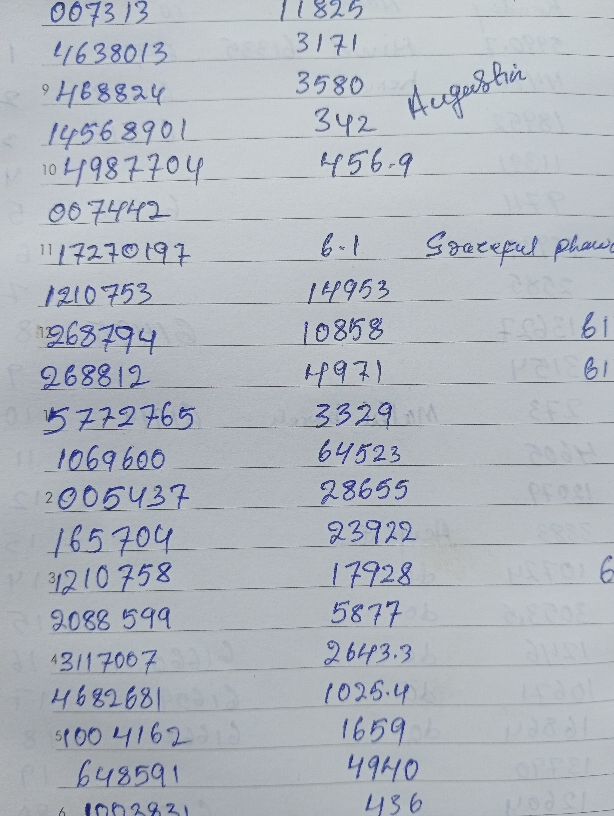 007313 11825
4638013 3171
9 468824 3580 Augustin
14568901 342
10 4987704 456.9
007442
11 17270197 6.1 Graceful
1210753 14953
12 268794 10858 61
268812 4971 61
5772765 3329
1069600 64523
2 005437 28655
165704 23922
3 1210758 17928 6
2088599 5877
4 3117007 2643.3
4682681 1025.4
5 1004162 1659
648591 4940
6 1003831 436